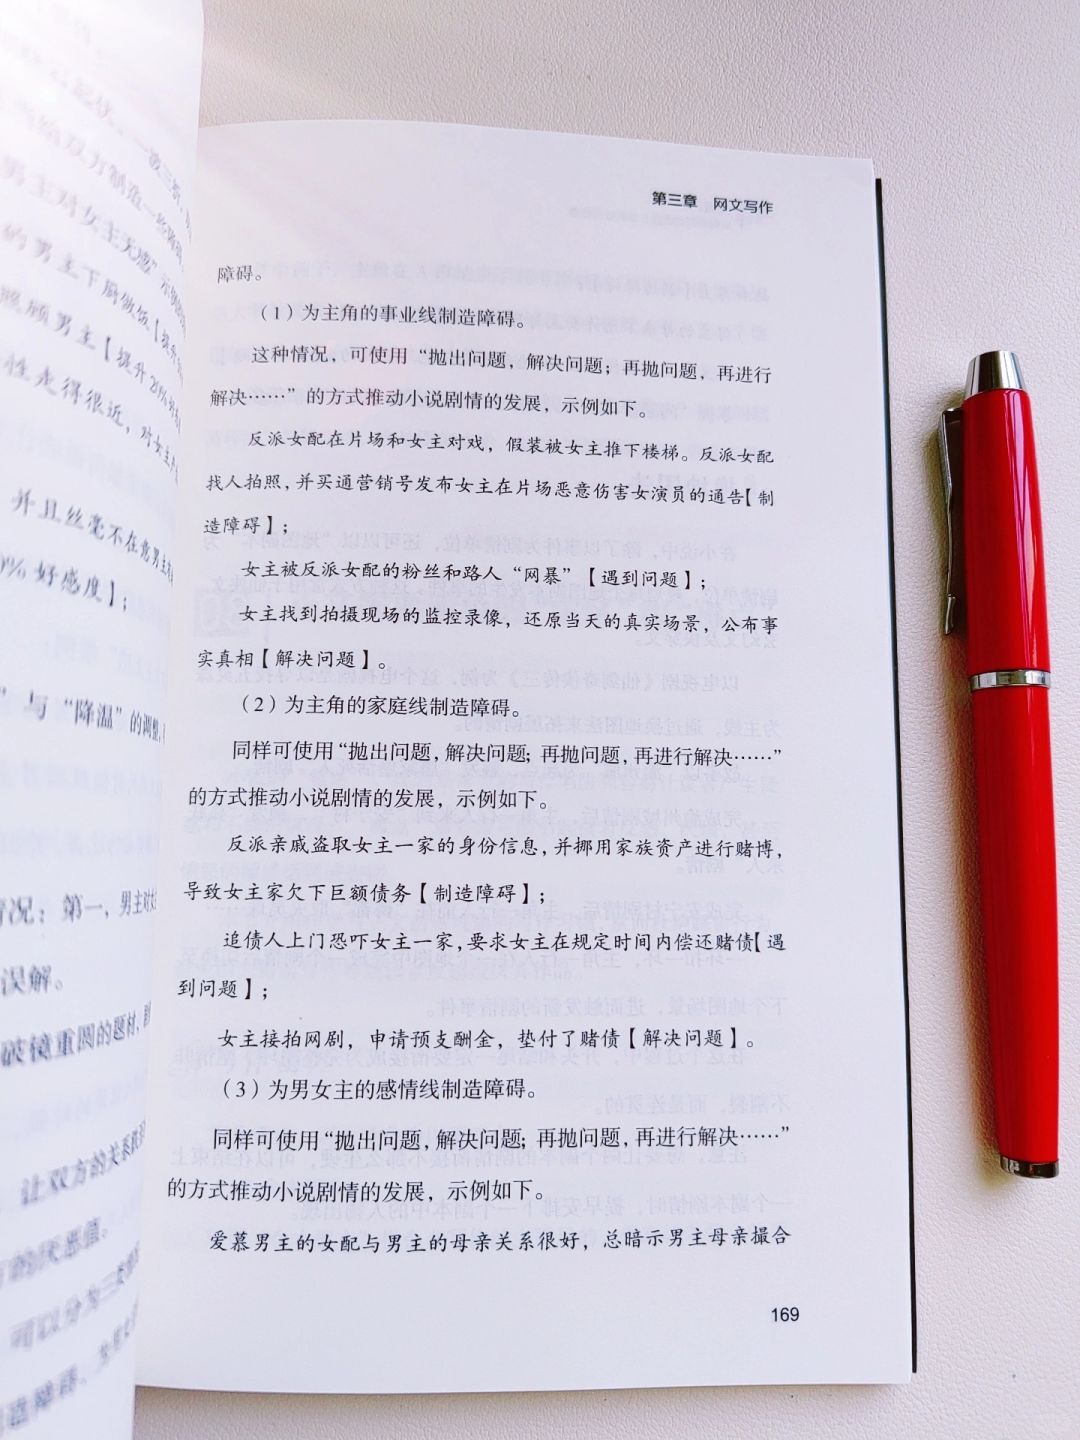 第三章 网文写作
障碍。
（1）为主角的事业线制造障碍。
这种情况，可使用“抛出问题，解决问题；再抛问题，再进行
解决……”的方式推动小说剧情的发展，示例如下。
反派女配在片场和女主对戏，假装被女主推下楼梯。反派女配
找人拍照，并买通营销号发布女主在片场恶意伤害女演员的通告【制
造障碍】；
女主被反派女配的粉丝和路人“网暴”【遇到问题】；
女主找到拍摄现场的监控录像，还原当天的真实场景，公布事
实真相【解决问题】。
（2）为主角的家庭线制造障碍。
同样可使用“抛出问题，解决问题；再抛问题，再进行解决……”
的方式推动小说剧情的发展，示例如下。
反派亲戚盗取女主一家的身份信息，并挪用家族资产进行赌博，
导致女主家欠下巨额债务【制造障碍】；
追债人上门恐吓女主一家，要求女主在规定时间内偿还赌债【遇
到问题】；
女主接拍网剧，申请预支酬金，垫付了赌债【解决问题】。
（3）为男女主的感情线制造障碍。
同样可使用“抛出问题，解决问题；再抛问题，再进行解决……”
的方式推动小说剧情的发展，示例如下。
爱慕男主的女配与男主的母亲关系很好，总暗示男主母亲撮合
169
男主对女主无感”示例
的男主下厨做饭【提升
照顾男主【提升20%
性走得很近，对女主
并且丝毫不在意男主
%好感度】；
”与“降温”的调整，
情况：第一，男主对
误解。
破镜重圆的题材，
让双方的关系
可以分为三